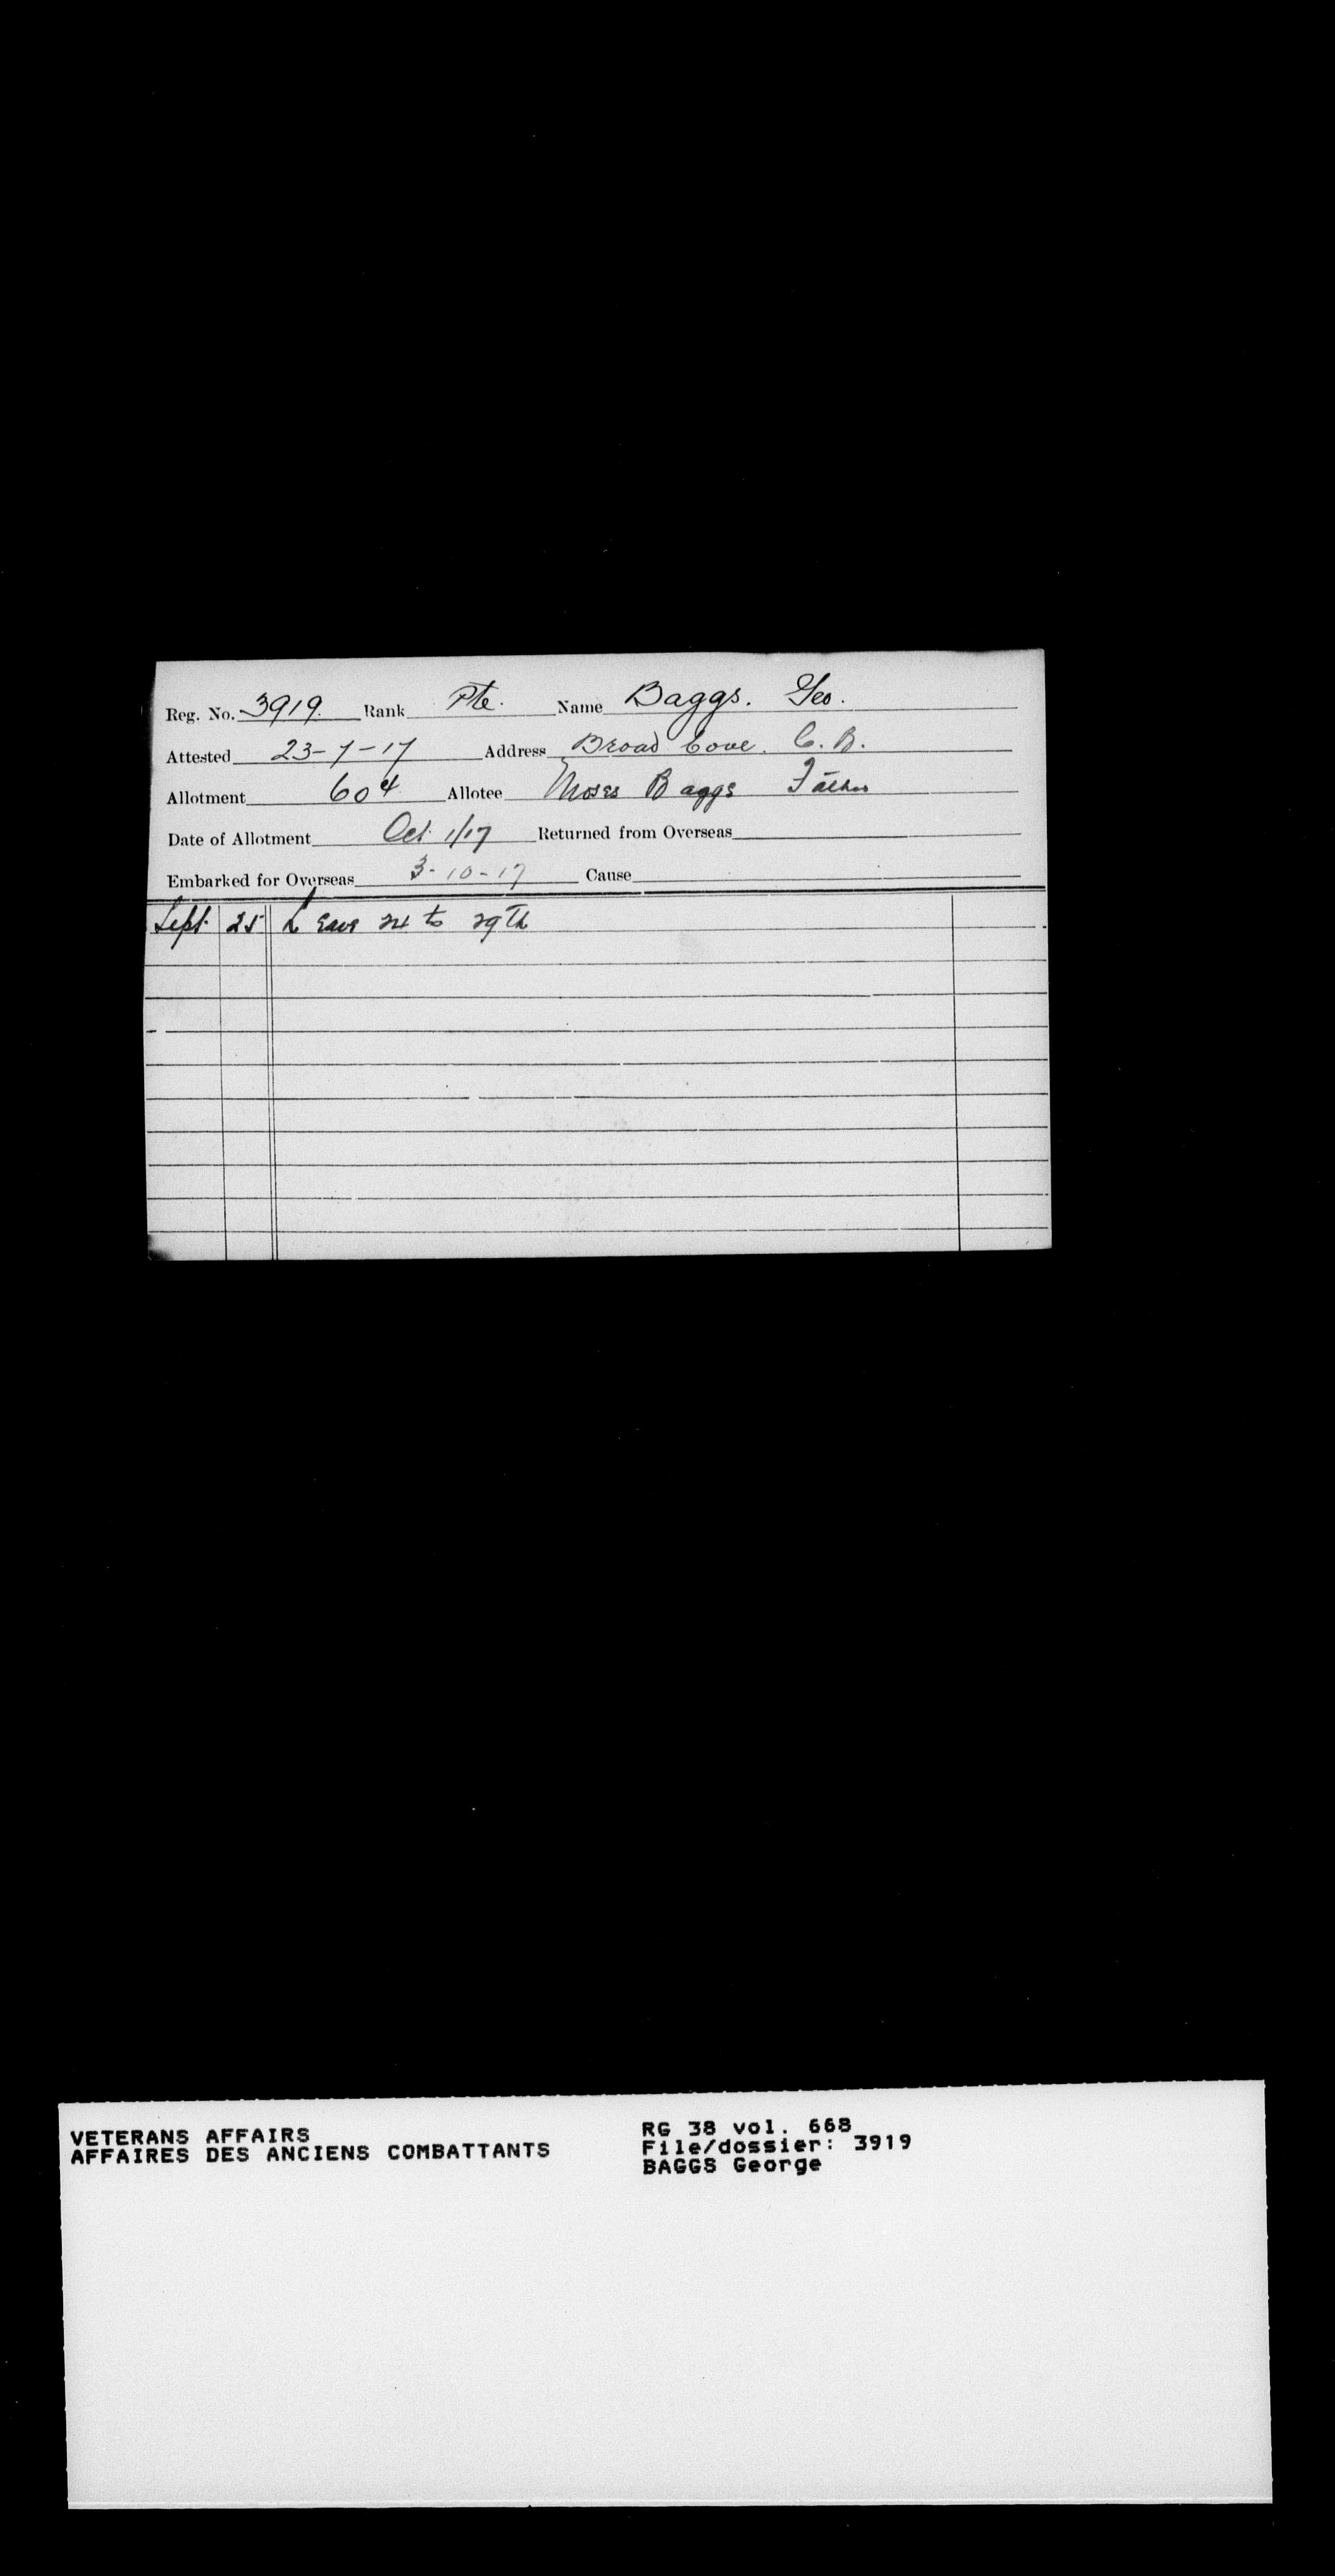 Reg. No. 3919. Rank Pte. Name Baggs. Geo.
Attested 23-7-17 Address Broad Cove. C. B.
Allotment 60¢ Allotee Moses Baggs Father
Date of Allotment Oct. 1/17 Returned from Overseas
Embarked for Overseas 3-10-17 Cause
Sept. 25 Leave 24 to 29th
VETERANS AFFAIRS
AFFAIRES DES ANCIENS COMBATTANTS
RG 38 vol. 668
File/dossier: 3919
BAGGS George